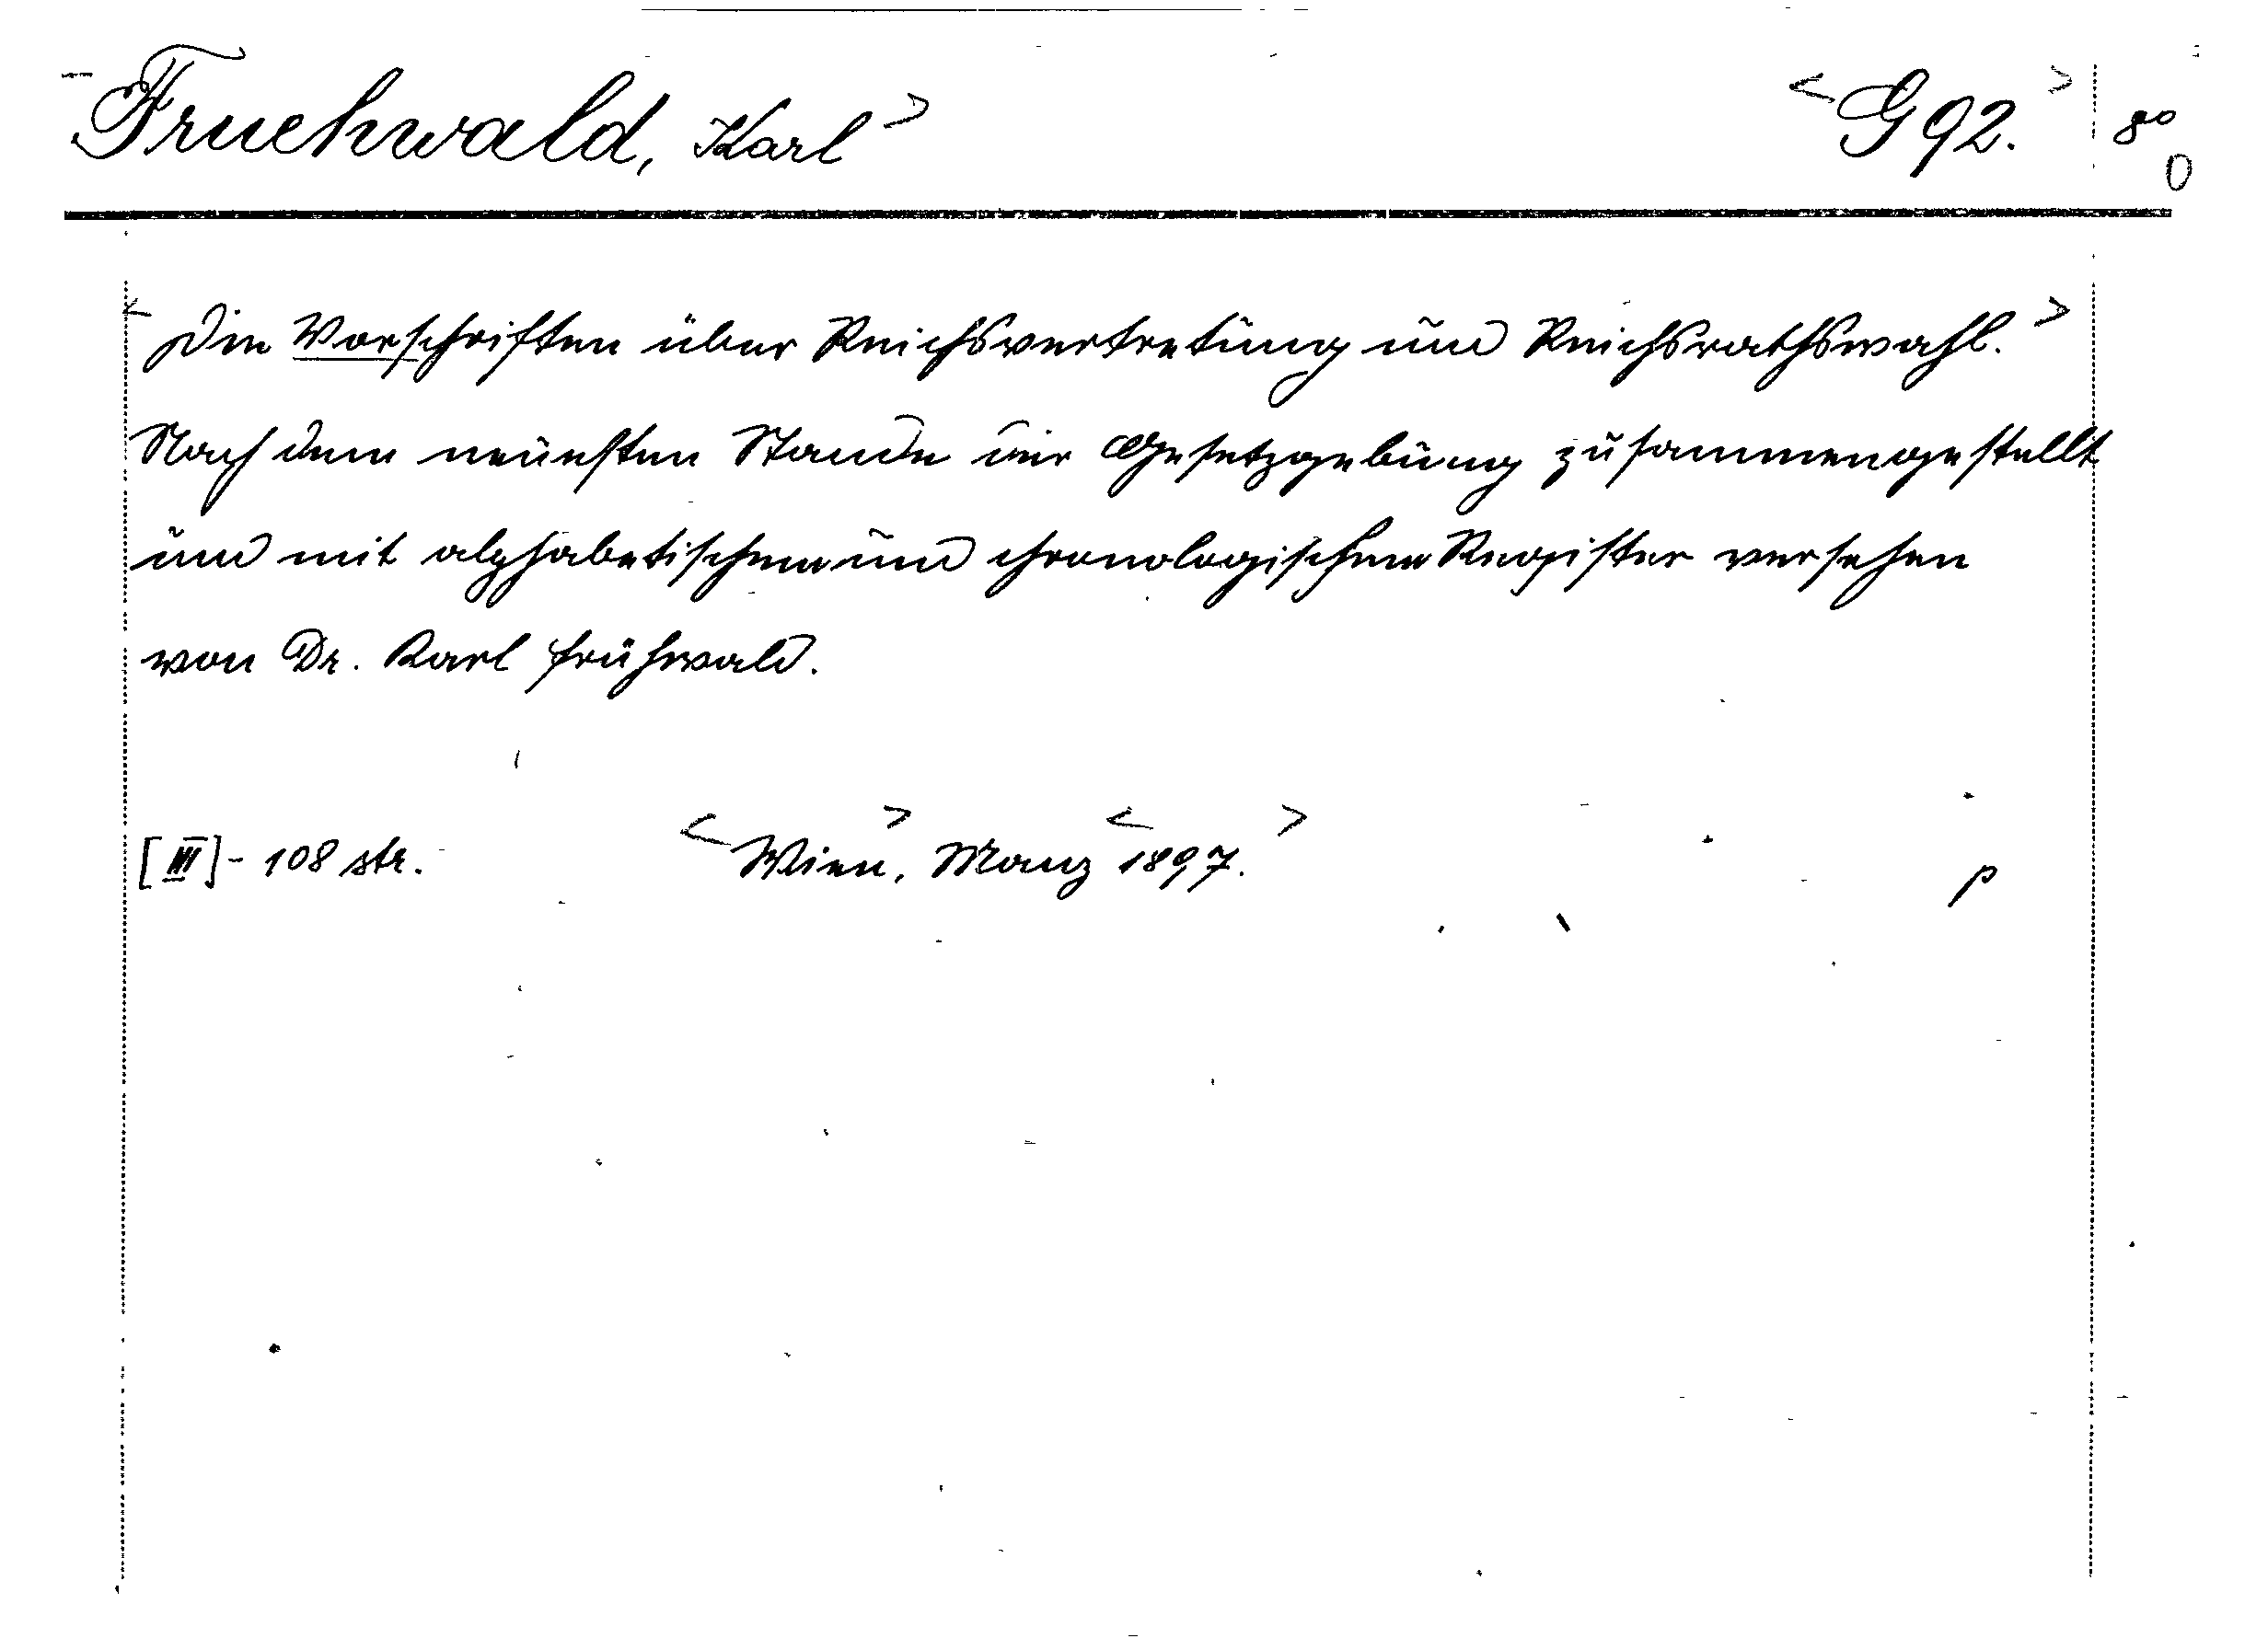 <Fruehwald, Karl> <G 92.> 8°
0
<Die Vorschriften über Reichsvertretung und Reichsrathswahl.>
Nach dem neuesten Stande der Gesetzgebung zusammengestellt
und mit alphabetischem und chronologischem Register versehen
von Dr. Karl Frühwald.
[III] - 108 str. <Wien>, Manz <1897.> p